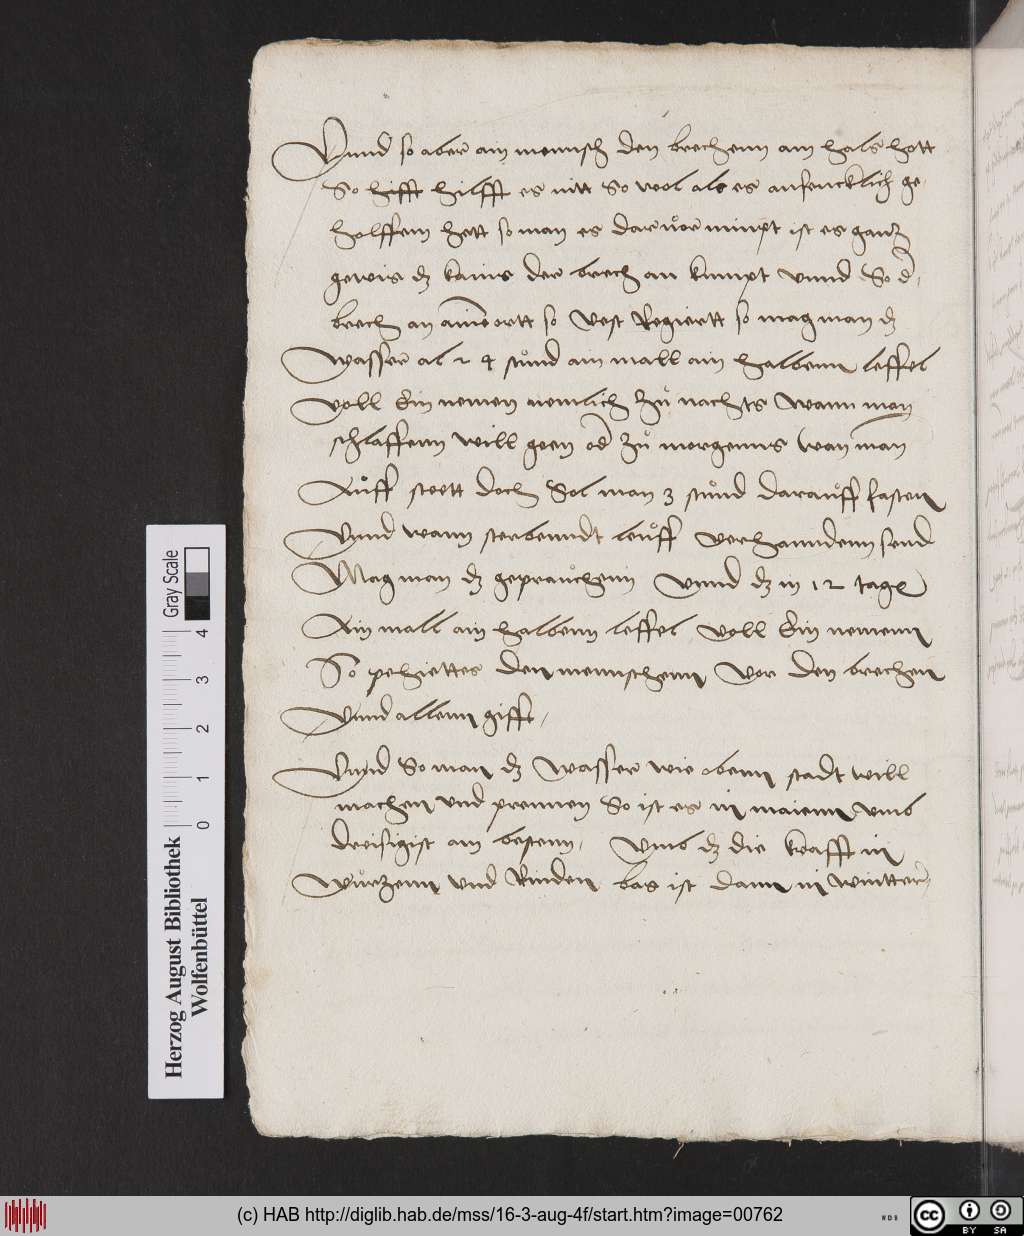 Vnnd so aber ain mennsch den brechenn am hals hott
So hifft hilfft es nitt So wol als es anfencklich ge-
holffenn hett so man es daruor nimpt ist es gantz
gewis dz kains der brech an kumpt vnnd So dr
brech an aim ortt so vest Regiertt so mag man dz
Wasser al 24 stůnd ain mall ain halbenn leffel
voll Ein nemen nemlich zů nachts Wann man
schlaffenn will geen oder zů morgenns wan man
Aůff steett doch Sol man 3 stůnd daraůff fasten
Vnnd wann sterbenndt leůff verhanndenn send
Mag man dz gepraůchenn vnnd dz in 12 tage
Ain mall ain halbenn leffel voll Ein nemenn
So pehiettes den mennschenn vor den brechen
Vnnd allenn gifft,
Vnnd So man dz Wasser wie obenn stadt will
machen vnd prennen So ist es in maienn vmb
dreisigist am bestenn, vmb dz die krafft in
Wůrzenn vnd Rinden bas ist dann in Wintter,
Herzog August Bibliothek
Wolfenbüttel
Gray Scale
0 1 2 3 4
(c) HAB http://diglib.hab.de/mss/16-3-aug-4f/start.htm?image=00762
WDB
cc BY SA